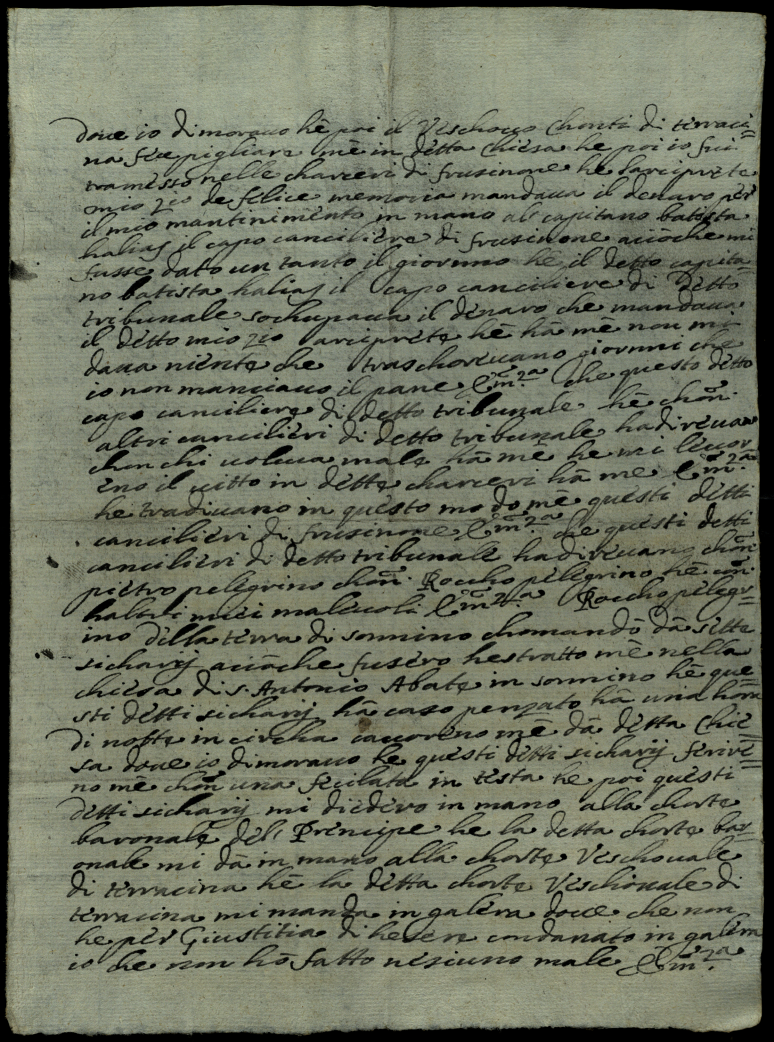 doue io dimorauo hē poi il Veschouo Chonti di terraci=
na fece pigliare mē in detta Chiesa he poi io fui
tramesso nelle charceri di frusinone he larciprete
mio zio de felice memoria mandaua il denaro per
il mio mantinimento in mano al capitano batista
halias il capo canciliere di frusinone acioche mi
fusse dato un tanto il giorno he il detto capita=
no batista halias il capo canciliere di detto
tribunale sochupaua il denaro che mandaua
il detto mio zio arciprete hē hā mē non mi
daua niente che traschoreuano giorni che
io non manciauo il pane E.m.za che questo detto
capo canciliere di detto tribunale hē chōn
altri cancilieri di detto tribunale hadireuano
chon chi uoleua male hā me he mi leuor
eno il uitto in dette charceri hā me E.m.za
he tradiuano in questo modo mē questi detti
cancilieri di frusinone E.m.za che questi detti
cancilieri di detto tribunale hadireuano chōn
pietro pelegrino chōn Roccho pelegrino hē con
haltri miei maleuoli E.m.za Roccho pelegr=
ino della terra di sonnino chomandò dā sette
sicharij acioche fusero hestratto mē nella
chiesa di S. Antonio Abate in sonnino hē que=
sti detti sicharij hā caso penzato hā una hora
di notte in circha cauoreno mē dā detta Chie=
sa doue io dimorauo he questi detti sicharij ferire=
no mē chōn una fecilata in testa he poi questi
detti sicharij mi diedero in mano alla chorte
baronale dell Prencipe he la detta chorte bar=
onale mi dā in mano alla chorte Veschouale
di terracina hē la detta chorte Veschouale di
terracina mi manda in galera doue che non
he per Giustitia di hesere condanato in galera
io che non hō fatto nesiuno male E.m.za